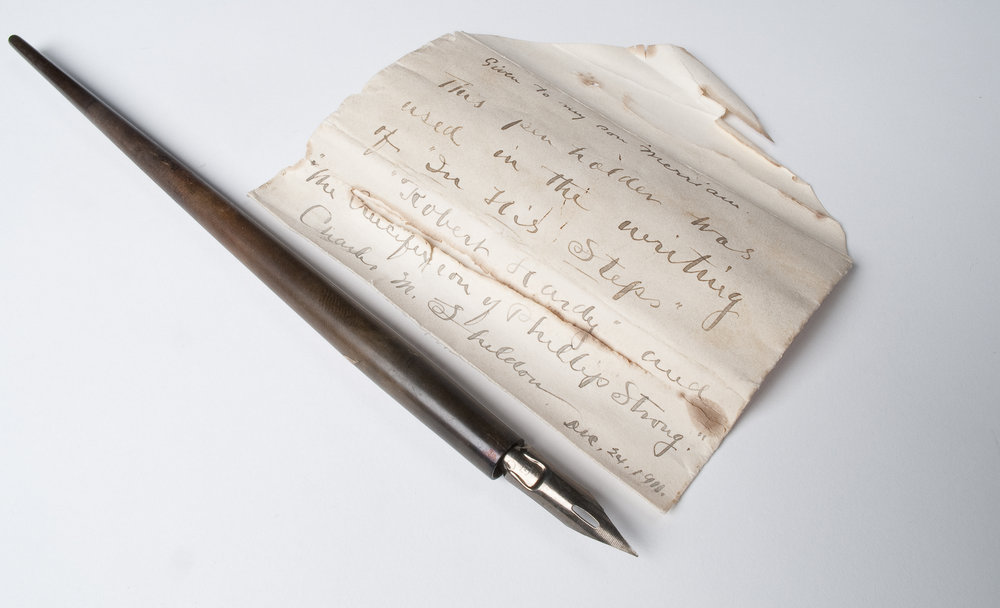 Given to my son Merriam.
This pen holder was
used in the writing
of "In His Steps"
"Robert Hardy" and
"The Crucifixion of Phillip Strong."
Charles M. Sheldon
Dec. 24,